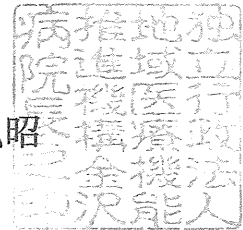 独立行政法人
地域医療機能
推進機構金沢
病院長
昭